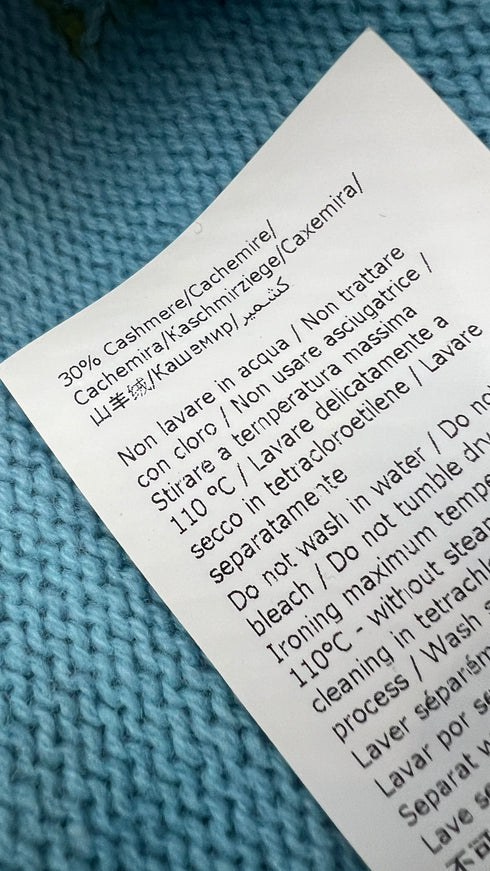 30% Cashmere/Cachemire/
Cachemira/Kaschmirziege/Caxemira/
山羊绒/Кашемир/كشمير
Non lavare in acqua / Non trattare
con cloro / Non usare asciugatrice /
Stirare a temperatura massima
110 °C / Lavare delicatamente a
secco in tetracloroetilene / Lavare
separatamente
Do not wash in water / Do not
bleach / Do not tumble dry
Ironing maximum tempe
110°C - without stean
cleaning in tetrachl
process / Wash s
Laver séparém
Lavar por se
Separat w
Lave se
不可